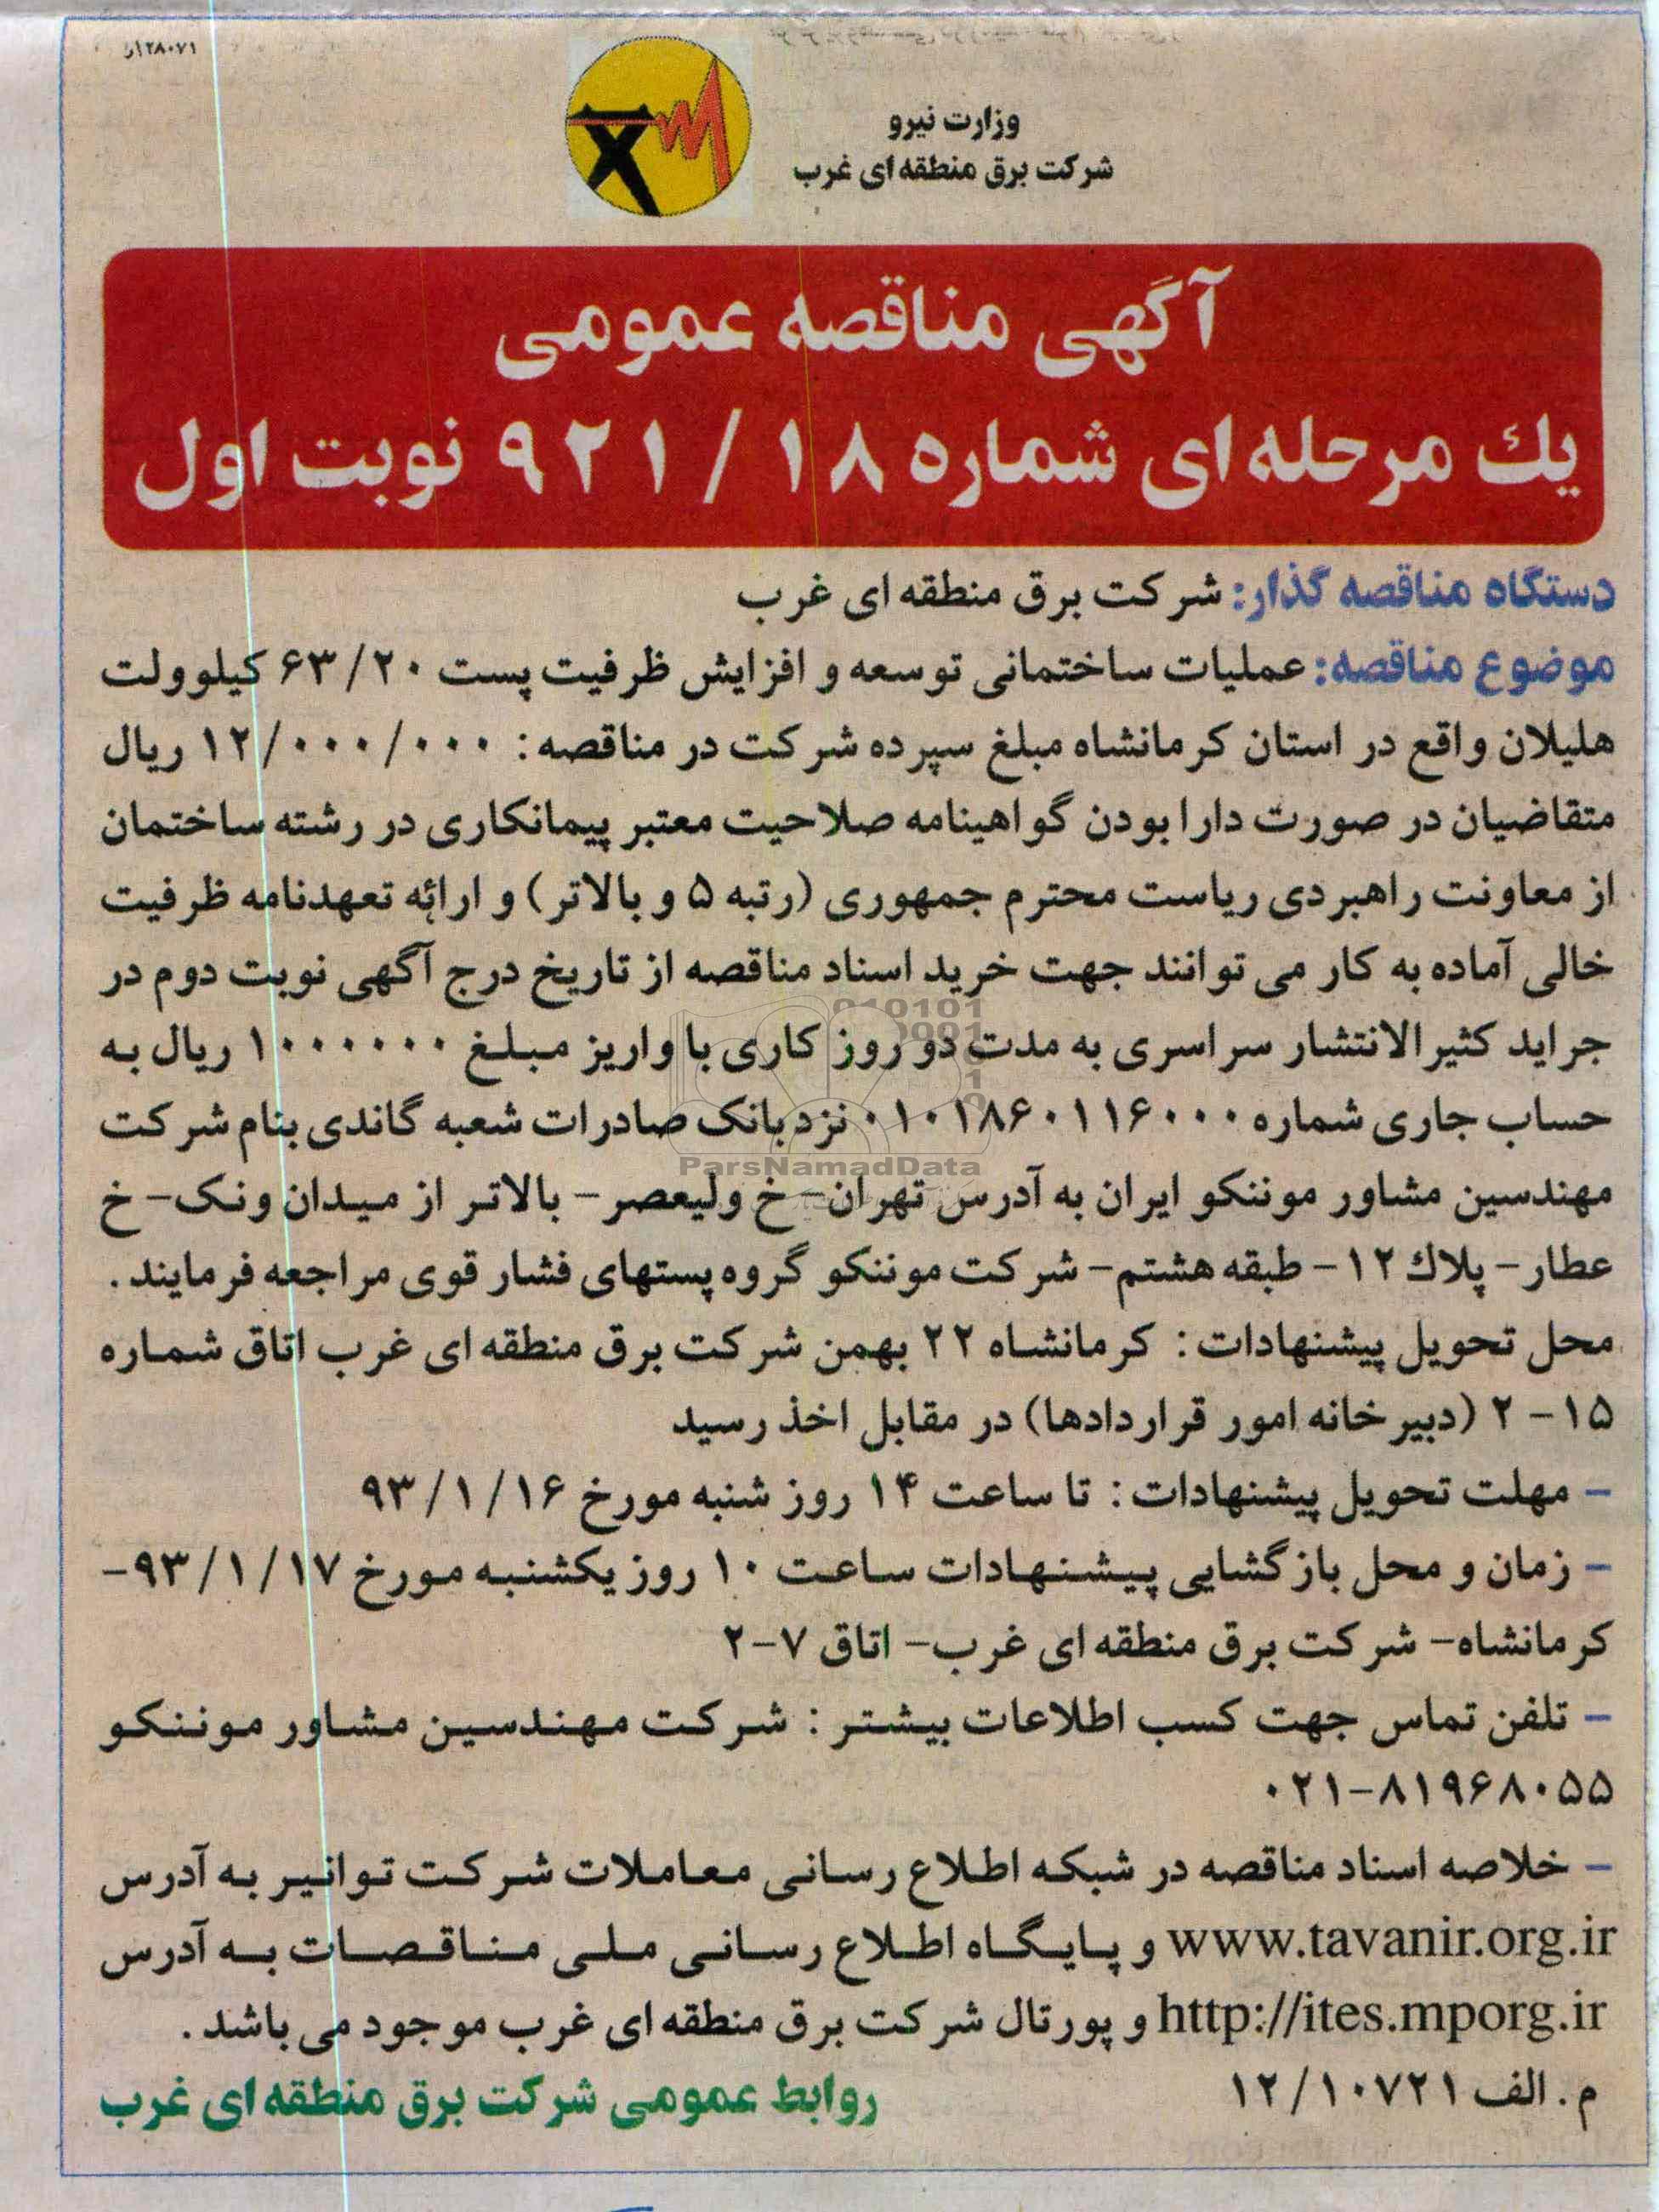 ۱۲۸۰۷۱ر
وزارت نیرو
شرکت برق منطقه ای غرب
آگهی مناقصه عمومی
یك مرحله ای شماره ۱۸ / ۹۲۱ نوبت اول
دستگاه مناقصه گذار: شرکت برق منطقه ای غرب
موضوع مناقصه: عملیات ساختمانی توسعه و افزایش ظرفیت پست ۶۳/۲۰ کیلوولت
هلیلان واقع در استان کرمانشاه مبلغ سپرده شرکت در مناقصه: ۱۲/۰۰۰/۰۰۰ ریال
متقاضیان در صورت دارا بودن گواهینامه صلاحیت معتبر پیمانکاری در رشته ساختمان
از معاونت راهبردی ریاست محترم جمهوری (رتبه ۵ و بالاتر) و ارائه تعهدنامه ظرفیت
خالی آماده به کار می توانند جهت خرید اسناد مناقصه از تاریخ درج آگهی نوبت دوم در
جراید کثیرالانتشار سراسری به مدت دو روز کاری با واریز مبلغ ۱۰۰۰۰۰۰ ریال به
حساب جاری شماره ۰۱۰۱۸۶۰۱۱۶۰۰۰ نزد بانک صادرات شعبه گاندی بنام شرکت
ParsNamadData
مهندسین مشاور موننکو ایران به آدرس تهران- خ ولیعصر- بالاتر از میدان ونک- خ
عطار- پلاك ۱۲- طبقه هشتم- شرکت موننکو گروه پستهای فشار قوی مراجعه فرمایند.
محل تحویل پیشنهادات: کرمانشاه ۲۲ بهمن شرکت برق منطقه ای غرب اتاق شماره
۱۵- ۲ (دبیرخانه امور قراردادها) در مقابل اخذ رسید
- مهلت تحویل پیشنهادات: تا ساعت ۱۴ روز شنبه مورخ ۹۳/۱/۱۶
- زمان و محل بازگشایی پیشنهادات ساعت ۱۰ روز یکشنبه مورخ ۹۳/۱/۱۷-
کرمانشاه- شرکت برق منطقه ای غرب- اتاق ۷-۲
- تلفن تماس جهت کسب اطلاعات بیشتر: شرکت مهندسین مشاور موننکو
۰۲۱-۸۱۹۶۸۰۵۵
- خلاصه اسناد مناقصه در شبکه اطلاع رسانی معاملات شرکت توانیر به آدرس
www.tavanir.org.ir و پایگاه اطلاع رسانی ملی مناقصات به آدرس
http://ites.mporg.ir و پورتال شرکت برق منطقه ای غرب موجود می باشد.
م. الف ۱۲/۱۰۷۲۱
روابط عمومی شرکت برق منطقه ای غرب